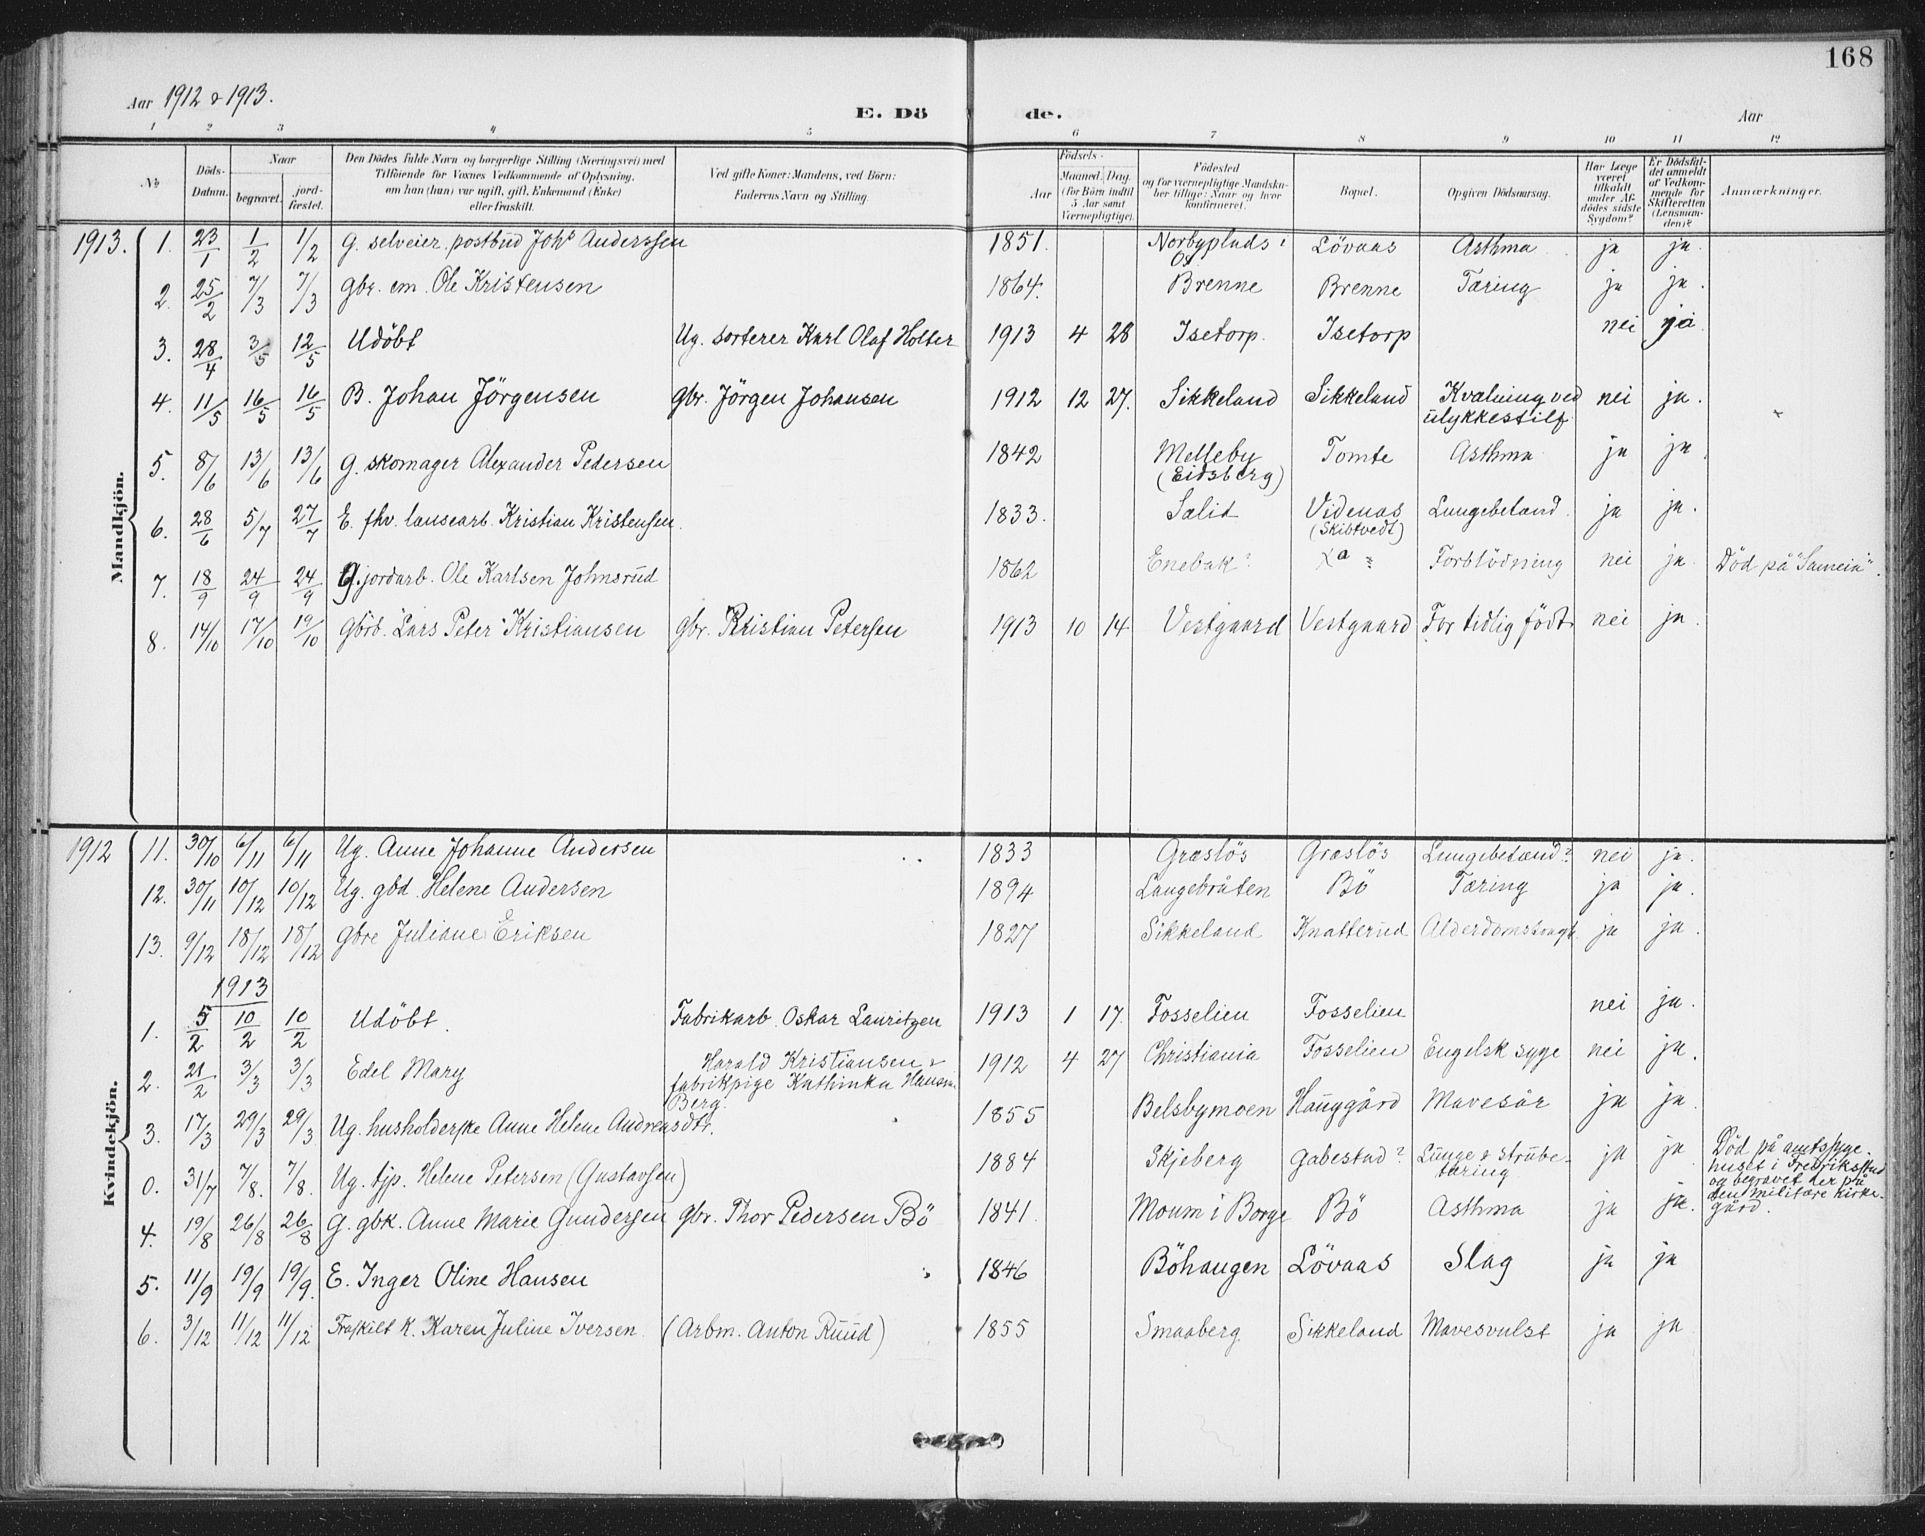 168
Aar 1912 & 1913.
E. Dö de.
Aar
1 2 3 4 5 6 7 8 9 10 11 12
No
Döds-Datum.
Naar
begravet.
jord-fæstet.
Den Dödes fulde Navn og borgerlige Stilling (Næringsvei) med
Tilföiende for Voxnes Vedkommende af Oplysning,
om han (hun) var ugift, gift, Enkemand (Enke)
eller fraskilt.
Ved gifte Koner: Mandens, ved Börn:
Faderens Navn og Stilling.
Födsels-
Aar
Maaned. Dag.
(for Börn indtil
5 Aar samt
Værnepligtige).
Födested
og for værnepligtige Mandskaber tillige: Naar og hvor
konfirmeret.
Bopæl.
Opgiven Dödsaarsag.
Har Læge
været
tilkaldt
under Afdödes sidste
Sygdom?
Er Dödsfaldet anmeldt
af Vedkommende for
Skifteretten
(Lensmanden)?
Anmærkninger.
Mandkjön.
1913. 1. 23/1 1/2 1/2 G. selveier postbud Johs Anderssen 1851. Norbyplads i Os Lövaas Asthma ja ja.
2. 25/2 7/3 7/3 gbr. em. Ole Kristensen 1864. Brenne Brenne Tæring ja ja.
3. 28/4 3/5 12/5 Udöbt Ug. sorterer Karl Olaf Holter 1913 4 28 Isetorp. Isetorp nei ja.
4. 11/5 16/5 16/5 B. Johan Jörgensen gbr. Jörgen Johansen 1912 12 27. Sikkeland Sikkeland Kvælning ved ulykkestilf. nei ja.
5. 8/6 13/6 13/6 G. skomager Alexander Pedersen 1842 Melleby (Eidsberg) Tomte Asthma ja ja.
6. 28/6 5/7 27/7 E. fhv. lausearb. Kristian Kristensen. 1833. Sælid Videnas (Skibtvedt) Lungebetænd. ja ja.
7. 18/9 24/9 24/9 G. jordarb. Ole Karlsen Johnsrud 1862 Enebak? Forblödning nei ja. Död på "Samein".
8. 14/10 17/10 19/10 gbrb. Lars Peter Kristiansen gbr. Kristian Petersen 1913 10 14 Vestgaard Vestgaard For tidlig födt nei ja.
Kvindekjön.
1912 11. 30/10 6/11 6/11 Ug. Anne Johanne Andersen 1833 Græslös Græslös Lungebetænd? nei ja.
12. 30/11 10/12 10/12 Ug. gbd. Helene Andersen 1894 Langebråten Bö Tæring ja ja.
13. 9/12 18/12 18/12 gbre Juliane Eriksen 1827 Sikkeland Knatterud Alderdomssvagh. ja ja.
1913
1. 5/2 10/2 10/2 Udöbt. Fabrikarb. Oskar Lauritzen 1913 1 17. Fosselien Fosselien nei ja.
2. 21/2 3/3 3/3 Edel Mary Harald Kristiansen & fabrikpige Kathinka Hansen Berg. 1912 4 27 Christiania Fosselien Engelsk syge nei ja.
3. 17/3 29/3 29/3 Ug. husholderske Anne Helene Andreasdtr. 1855 Belsbymoen Hauggård Mavesår ja ja.
0. 31/7 7/8. 7/8. Ug. tjp. Helene Petersen (Gustavsen) 1884 Skjeberg Gabestad? Lunge & strubetæring ja ja Död på amtssygehuset i Fredrikstad og begravet her på den militære kirkegård.
4. 19/8 26/8 26/8 G. gbk. Anne Marie Gundersen gbr. Thor Pedersen Bö 1841. Moum i Borge Bö Asthma ja ja.
5. 11/9 19/9 19/9. E. Inger Oline Hansen 1846 Böhaugen Lövaas Slag ja ja
6. 3/12 11/12 11/12 Fraskilt k. Karen Juline Iversen (Arbm. Anton Ruud) 1855 Smaaberg Sikkeland Mavesvulst ja ja